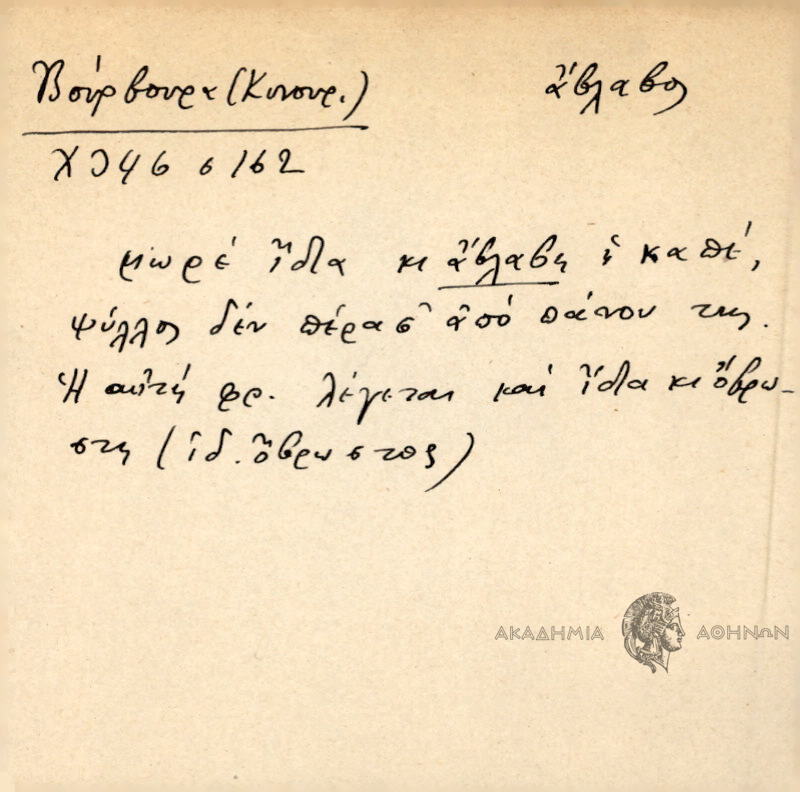 Βούρβουρα (Κυνουρ.) ἄβλαβος
Χ 346 σ 162
μωρέ ἴδια κι ἄβλαβη ἡ καπέ,
ψύλλος δέν πέρασ' ἀπό πάνου της.
Ἡ αὐτή φρ. λέγεται καί ἴδια κι ὄβρω-
στη (ἰδ. ὄβρωστος)
ΑΚΑΔΗΜΙΑ ΑΘΗΝΩΝ